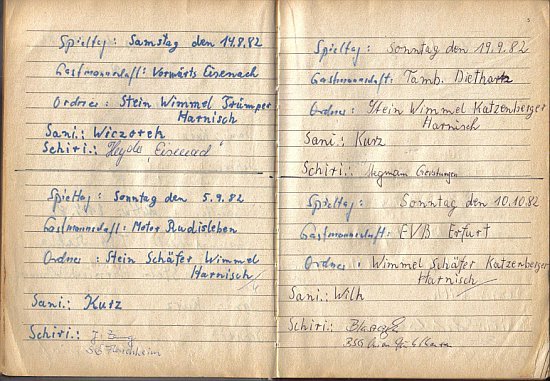 Spieltag: Samstag den 14.8.82
Gastmannschaft: Vorwärts Eisenach
Ordner: Stein Wimmel Trümper
Harnisch
Sani.: Wiczorek
Schiri.:
Spieltag: Sonntag den 5.9.82
Gastmannschaft: Motor Rudisleben
Ordner: Stein Schäfer Wimmel
Harnisch
Sani.: Kurz
Schiri.:
SG
Spieltag: Sonntag den 19.9.82
Gastmannschaft: Tamb. Dietharz
Ordner: Stein Wimmel Katzenberger
Harnisch
Sani: Kurz
Schiri.: Gerstungen
Spieltag: Sonntag den 10.10.82
Gastmannschaft: EVB Erfurt
Ordner: Wimmel Schäfer Katzenberger
Harnisch
Sani.: Wilh
Schiri.:
BSG